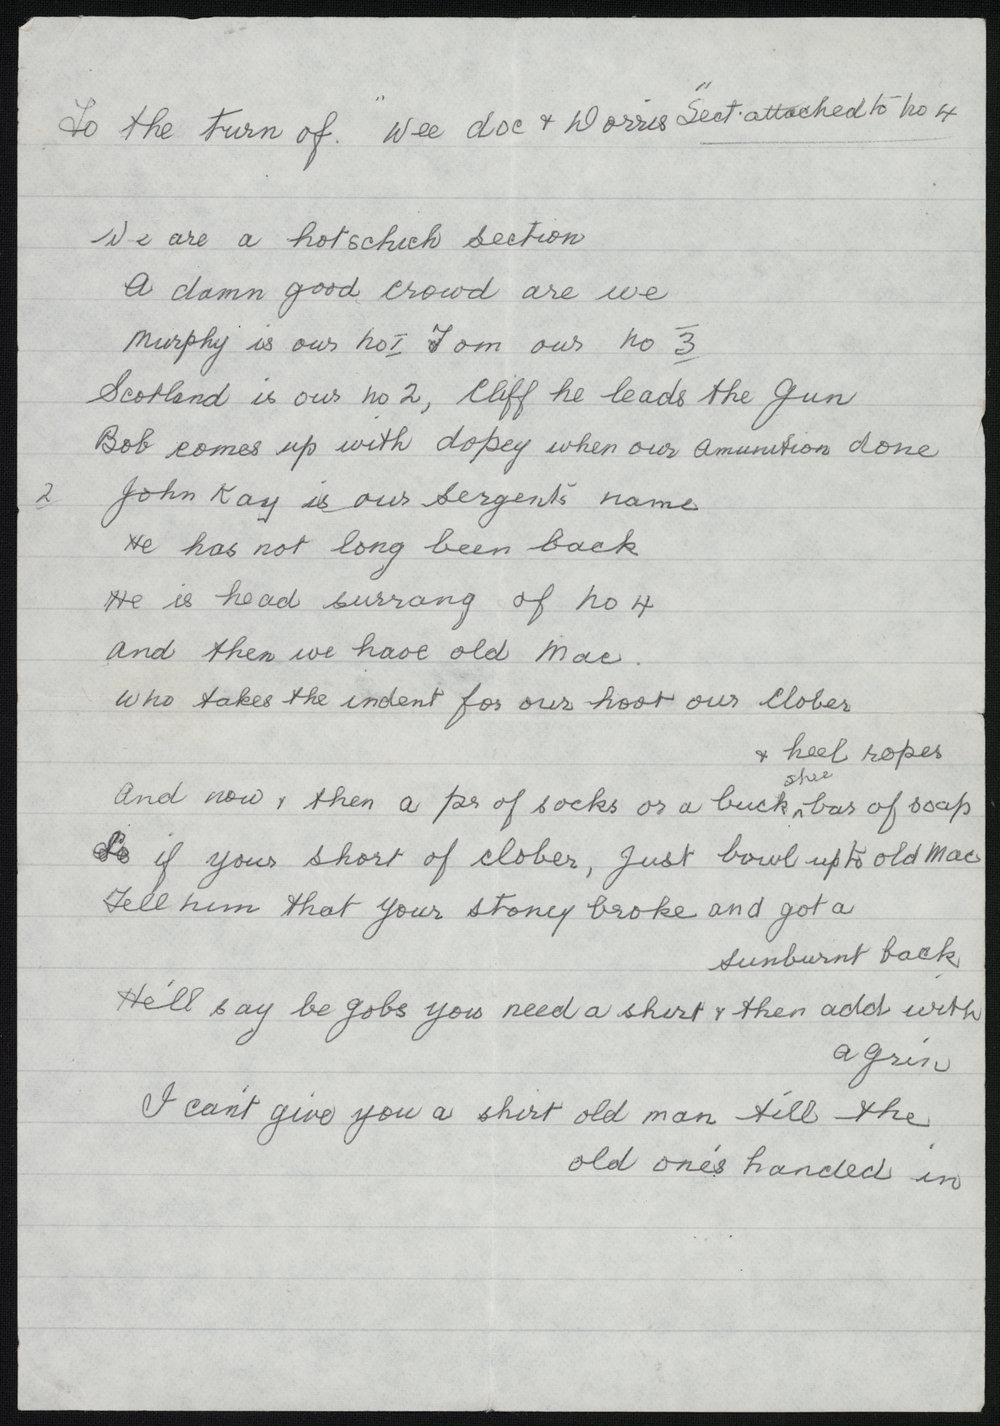 To the turn of. "Wee doc & Dorris" Sect. attached to no 4
We are a hotschich section
A damn good crowd are we
Murphy is our no I Tom our no 3
Scotland is our no 2, Cliff he leads the Gun
Bob comes up with dopey when our amunition done
2 John Kay is our Sergents name
He has not long been back
He is head surrang of no 4
and then we have old Mac.
who takes the indent for our hoot our Clober
& heel ropes
And now & then a pr of socks or a buck shee bar of soap
So if your short of clober, Just bowl up to old Mac
Tell him that your stoney broke and got a
sunburnt back
He'll say be gobs you need a shirt & then add with
a grin
I can't give you a shirt old man till the
old one's handed in